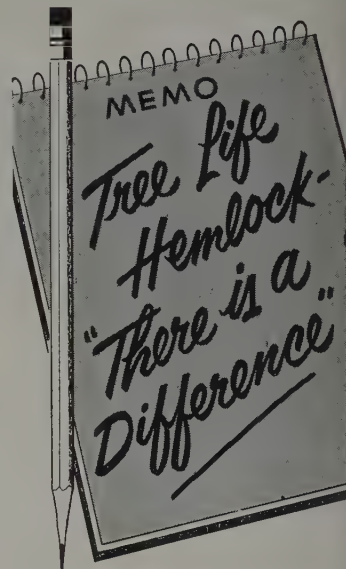 MEMO
Tree Life
Hemlock-
"There is a
Difference"